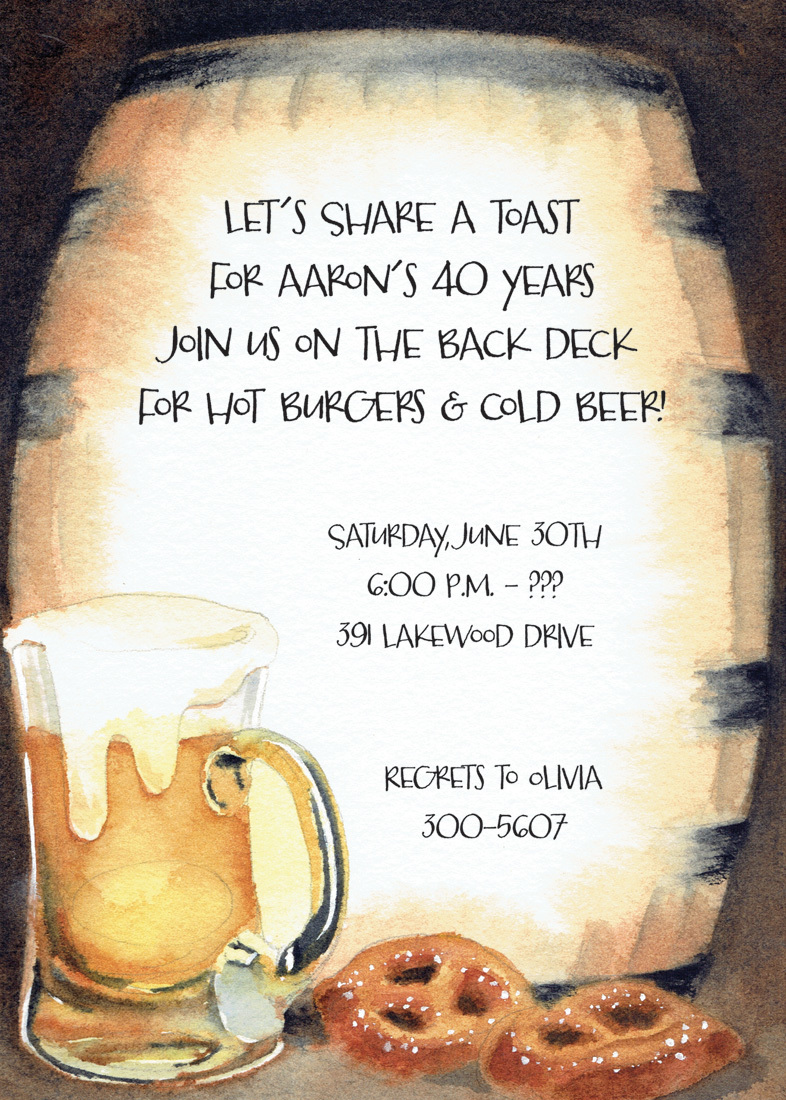 LET'S SHARE A TOAST
FOR AARON'S 40 YEARS
JOIN US ON THE BACK DECK
FOR HOT BURGERS & COLD BEER!
SATURDAY, JUNE 30TH
6:00 P.M. – ???
391 LAKEWOOD DRIVE
REGRETS TO OLIVIA
300-5607